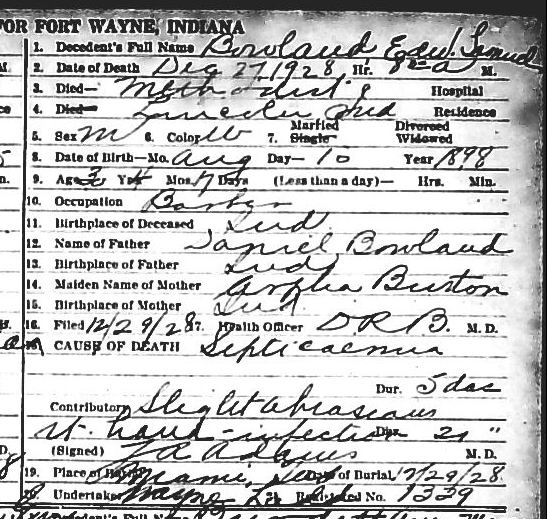 FOR FORT WAYNE, INDIANA
1. Decedent's Full Name Bowland Edw. Samuel
2. Date of Death Dec 27, 1928 Hr. 8 a M.
3. Died— Methodist Hospital
4. Died— Lincoln Ind Residence
5. Sex M 6. Color W 7. Married Single Divorced Widowed
8. Date of Birth—Mo. Aug Day— 10 Year 1898
9. Age 30 Yrs 4 Mos. 17 Days (Less than a day)— Hrs. Min.
10. Occupation Barber
11. Birthplace of Deceased Ind
12. Name of Father Daniel Bowland
13. Birthplace of Father Ind
14. Maiden Name of Mother Burton
15. Birthplace of Mother Ind
16. Filed 12/29/28 17. Health Officer D R B. M. D.
18. CAUSE OF DEATH Septicaemia
Dur. 5 das
Contributory Slight abrasions
rt. hand - infection Dur. 21 "
(Signed) Adams M. D.
19. Place of Burial Miami, Ind Date of Burial 12/29/28
20. Undertaker Wayne 21. Registered No. 1339
Decedent's Full Name